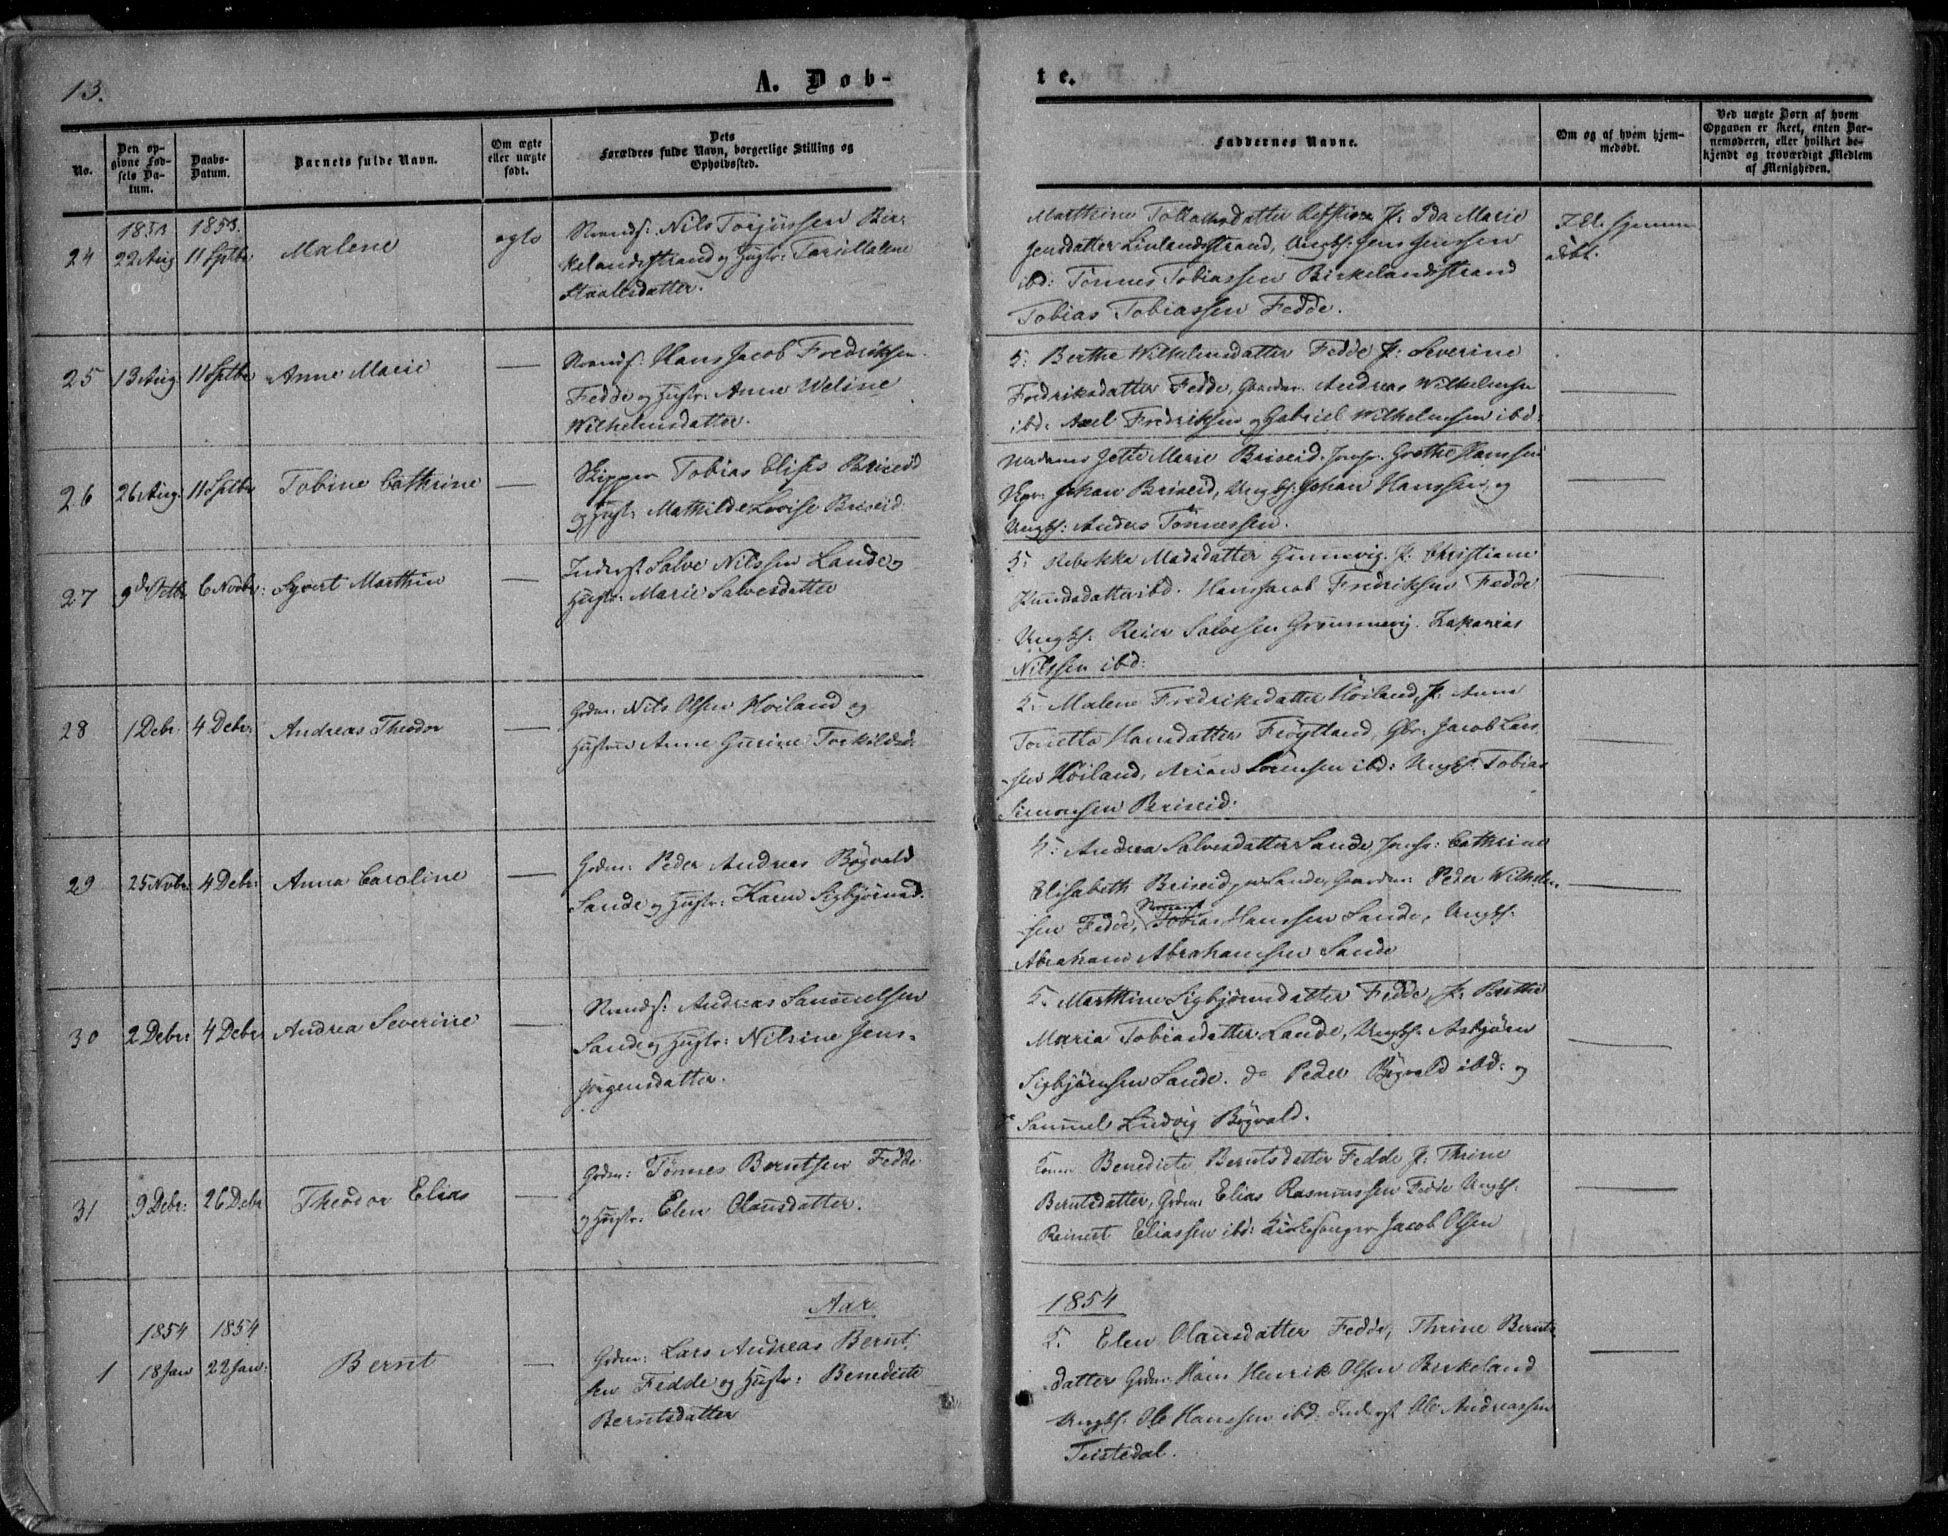 13.
A. Døb-
te.
No.
Den op-
givne Fød-
sels Da-
tum.
Daabs-
Datum.
Barnets fulde Navn.
Om ægte
eller uægte
født.
Dets
Forældres fulde Navn, borgerlige Stilling og
Opholdssted.
Faddernes Navne.
Om og af hvem hjem-
medøbt.
Ved uægte Børn af hvem
Opgaven er skeet, enten Bar-
nemoderen, eller hvilket be-
kjendt og troværdigt Medlem
af Menigheden.
24
1853
22 Aug
1853.
11 Septbr
Malene
ægte
Nils Torjussen Bir-
kelandsstrand og Hustr: Malene
Staalesdatter.
Marthine J: Ida Marie
Jensdatter Livlandsstrand, Ungk: Jens Jenssen
ibd: Tønnes Tobiassen Birkelandsstrand
Tobias Tobiassen Fedde.
døbt.
25
13 Aug
11 Septbr
Anne Marie
Hans Jacob Fredriksen
Fedde og Hustr: Anne Weline
Wilhelmsdatter.
K: Berthe Wilhelmsdatter Fedde J: Severine
Fredriksdatter Fedde, Gaardm. Andreas Wilhelmsen
ibd: Axel Fredriksen og Gabriel Wilhelmsen ibd:
26
26 Aug:
11 Septbr
Tobine Cathrine
Skipper Tobias Elias Briseid
og Hustr: Mathilde Lovise Briseid
Madame Jette Marie Briseid. Jomfr. Grethe Hanssen
Skpr: Johan Briseid, Ungk: Johan Hanssen og
Ungk: Anders Tønnessen.
27
9d Octb
6 Novbr:
Syvert Marthin
Inderst Salve Nilssen Lande og
Hustr: Marie Salvesdatter
K: Rebekka Madsdatter J: Christiane
ibd. Hans Jacob Fredriksen Fedde
Ungk: Reier Salvesen Grummevig. Zakarias
Nilssen ibd:
28
1 Debr
4 Debr:
Andreas Theodor
Grdm: Nils Olsen Høiland og
Hustru Anne Gurine Torkildsd:
K: Malene Fredriksdatter Høiland, J: Anne
Tonette Hansdatter Frøytland, Gbr: Jacob Lars
sen Høiland, Arian Sørensen ibd: Ungk: Tobias
Simonsen Briseid.
29
25 Nvbr:
4 Debr:
Anna Caroline
Grdm: Peder Andreas Bøgvald
Sande og Hustr: Karen Sigbjørnsd.
K: Andrea Salvesdatter Sande Jomfr: Cathrine
Elisabeth Briseid Sande, Gaardm: Peder Wilhelm-
sen Fedde, Tobias Hanssen Sande, Ungk:
Abraham Abrahamsen Sande
30
2 Debr:
4 Debr:
Andrea Severine
Andreas Samuelsen
Sande og Hustr: Nilsine Jens-
Jørgensdatter.
K. Marthine Sigbjørnsdatter Fedde, J: Berthe
Maria Tobiasdatter Lande, Ungk: Asbjørn
Sigbjørnsen Sande. do Peder Bøgvald ibd: og
do Samuel Ludvig Bøgvald.
31
9 Debr:
26 Debr
Theodor Elias
Grdm: Tønnes Berntsen Fedde
og Hustr: Elen Olausdatter.
Kone Benedicte Berntsdatter Fedde J: Thrine
Berntsdatter, Grdm: Elias Rasmussen Fedde Ungk:
Reinert Eliassen ibd: Kirkesanger Jacob Olsen
Aar
1854
1
1854
18 Jan
1854
22 Jan:
Bernt
Grdm: Lars Andreas Bernt-
sen Fedde og Hustr: Benedicte
Berntsdatter
K. Elen Olausdatter Fedde, Thrine Bernts
datter Grdm: Hans Henrik Olsen Birkeland
Ungk: Ole Hanssen ibd: Inderst Ole Andreassen
Teistedal.